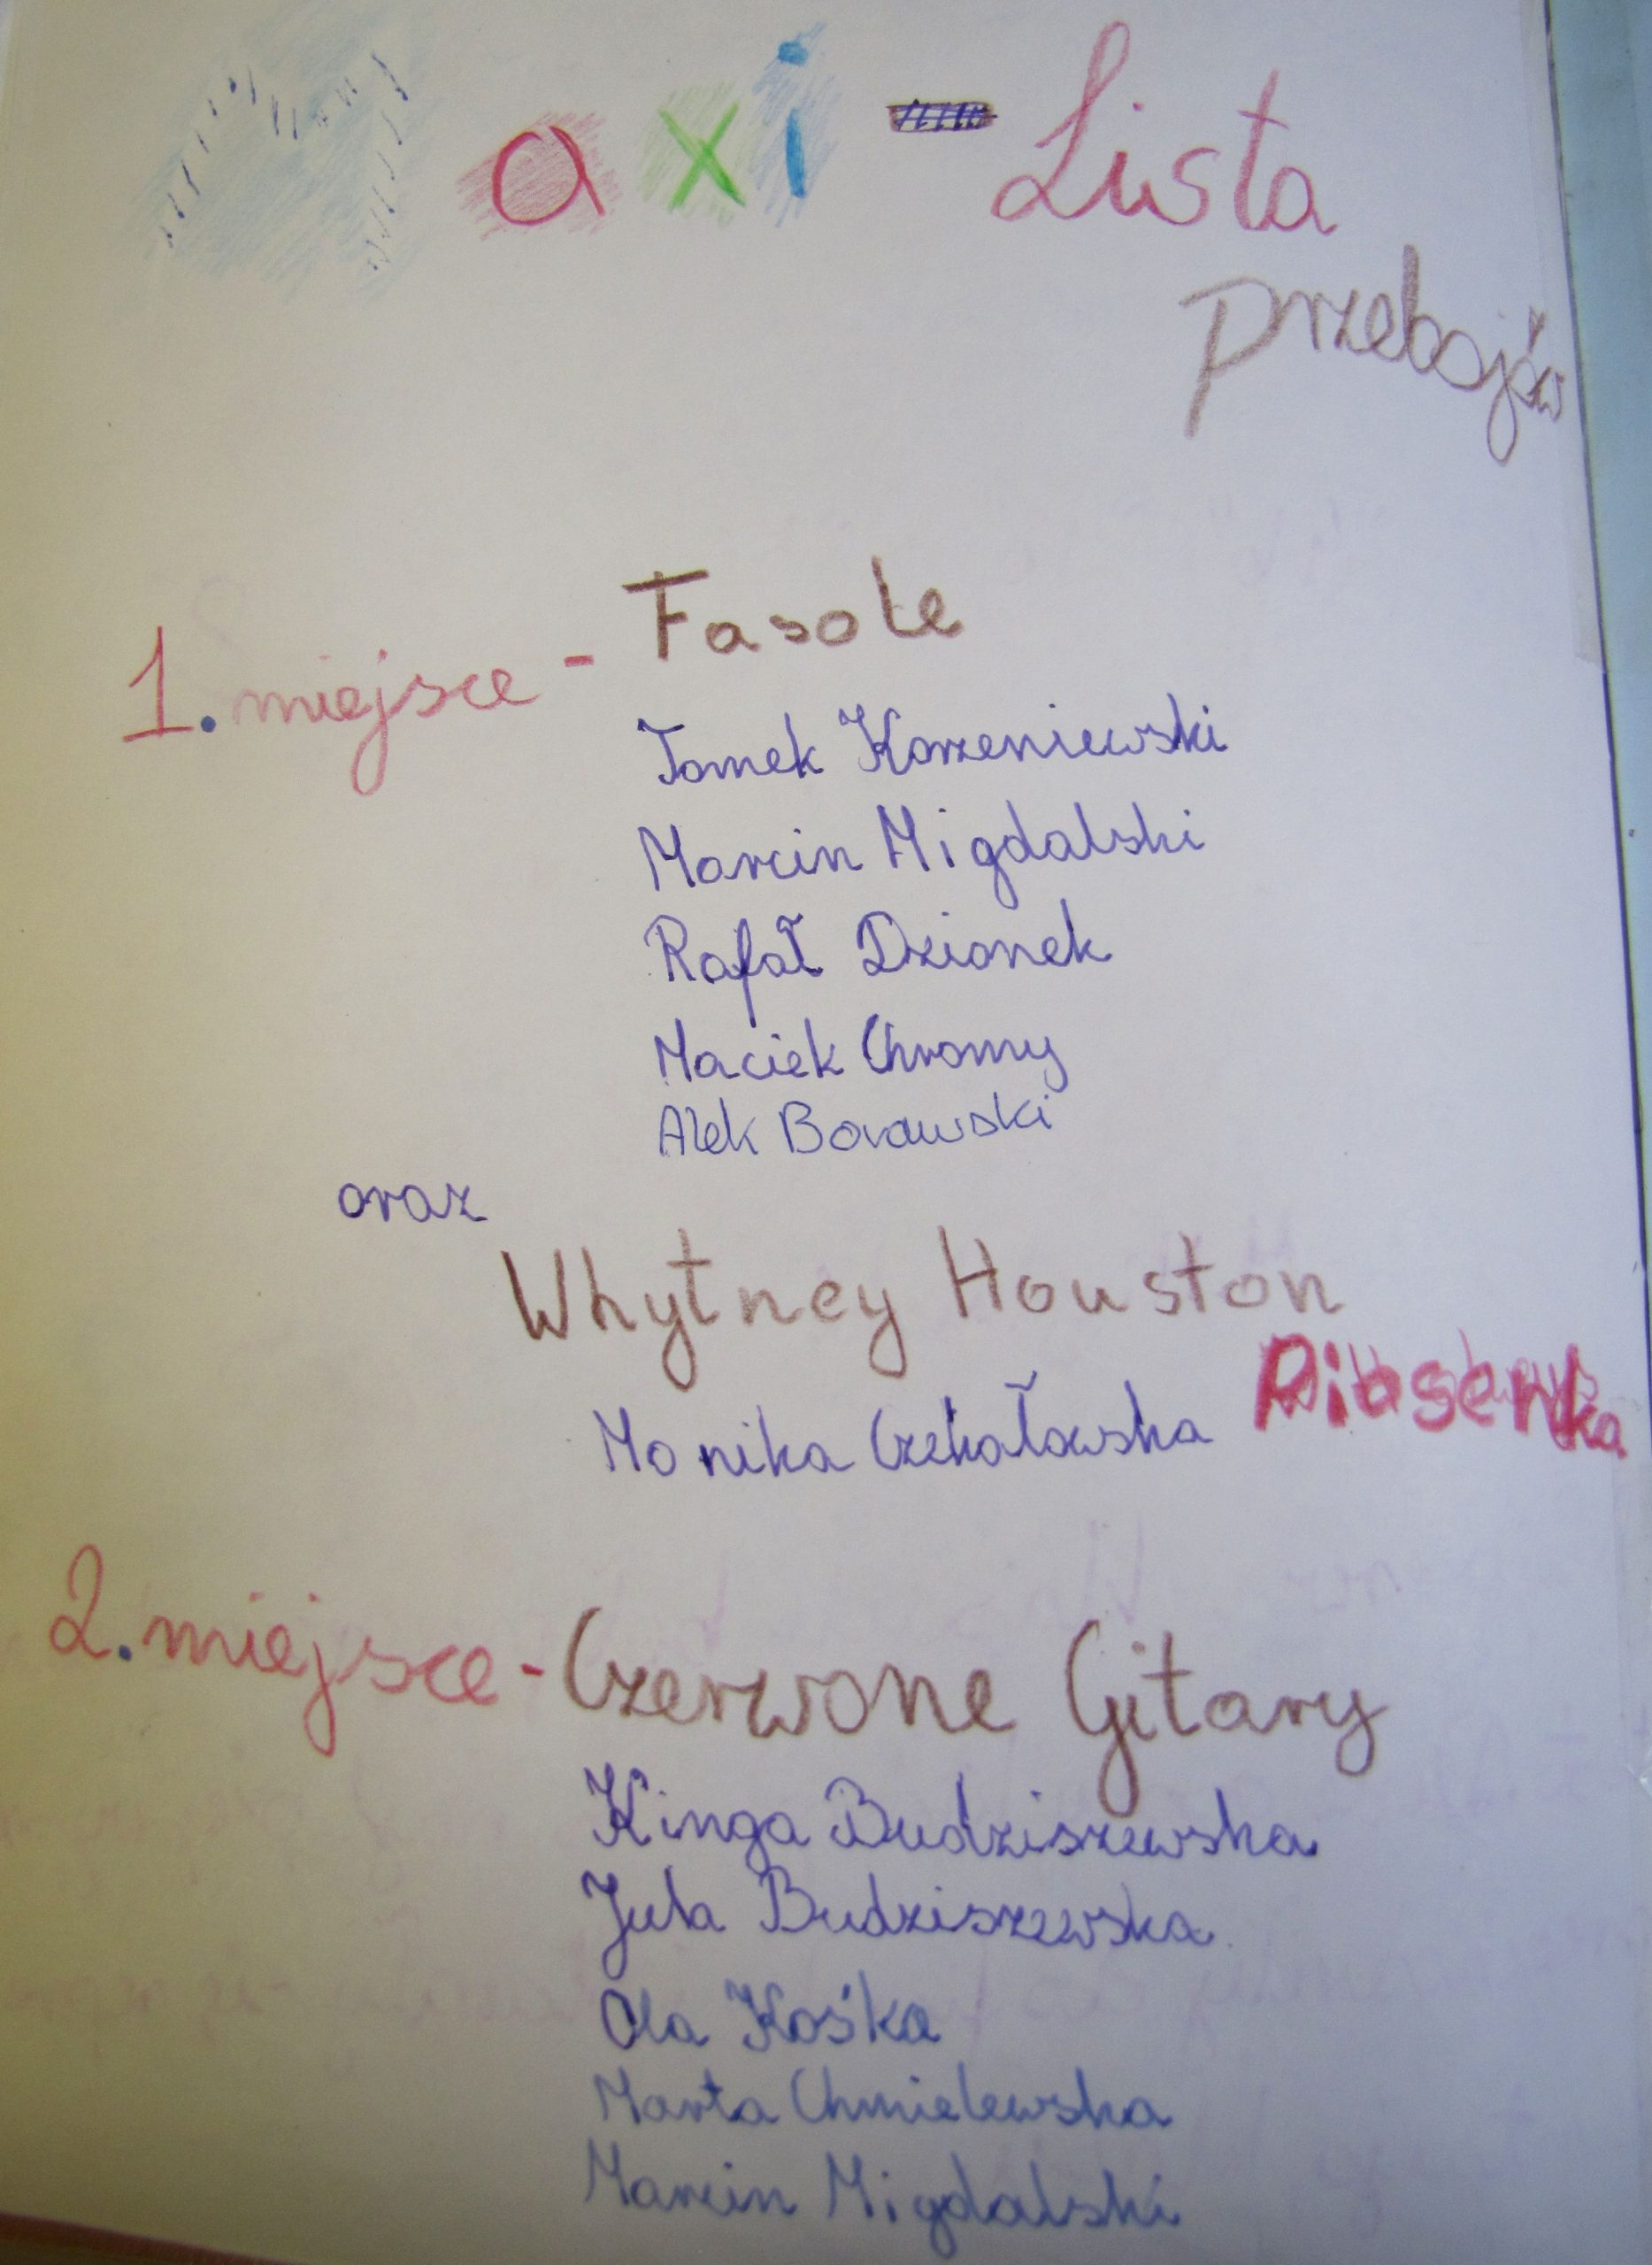 Maxi - Lista
Przebojów
1. miejsce - Fasole
Tomek Korzeniewski
Marcin Migdalski
Rafał Dzionek
Maciek Chromy
Alek Borawski
oraz
Whytney Houston
Monika Czekałowska Piosenka
2. miejsce - Czerwone Gitary
Kinga Budziszewska
Jula Budziszewska
Ola Kośka
Marta Chmielewska
Marcin Migdalski